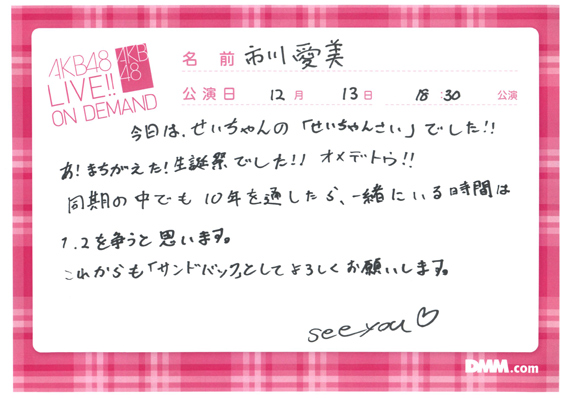 AKB48
LIVE!!
ON DEMAND
AKB
48
名 前 市川愛美
公演日 12月 13日 18:30 公演
今日は、せいちゃんの「せいちゃんさい」でした!!
あ!まちがえた!生誕祭でした!! オメデトウ!!
同期の中でも10年を通したら、一緒にいる時間は
1.2を争うと思います。
これからも「サンドバック」としてよろしくお願いします。
see you♡
DMM.com